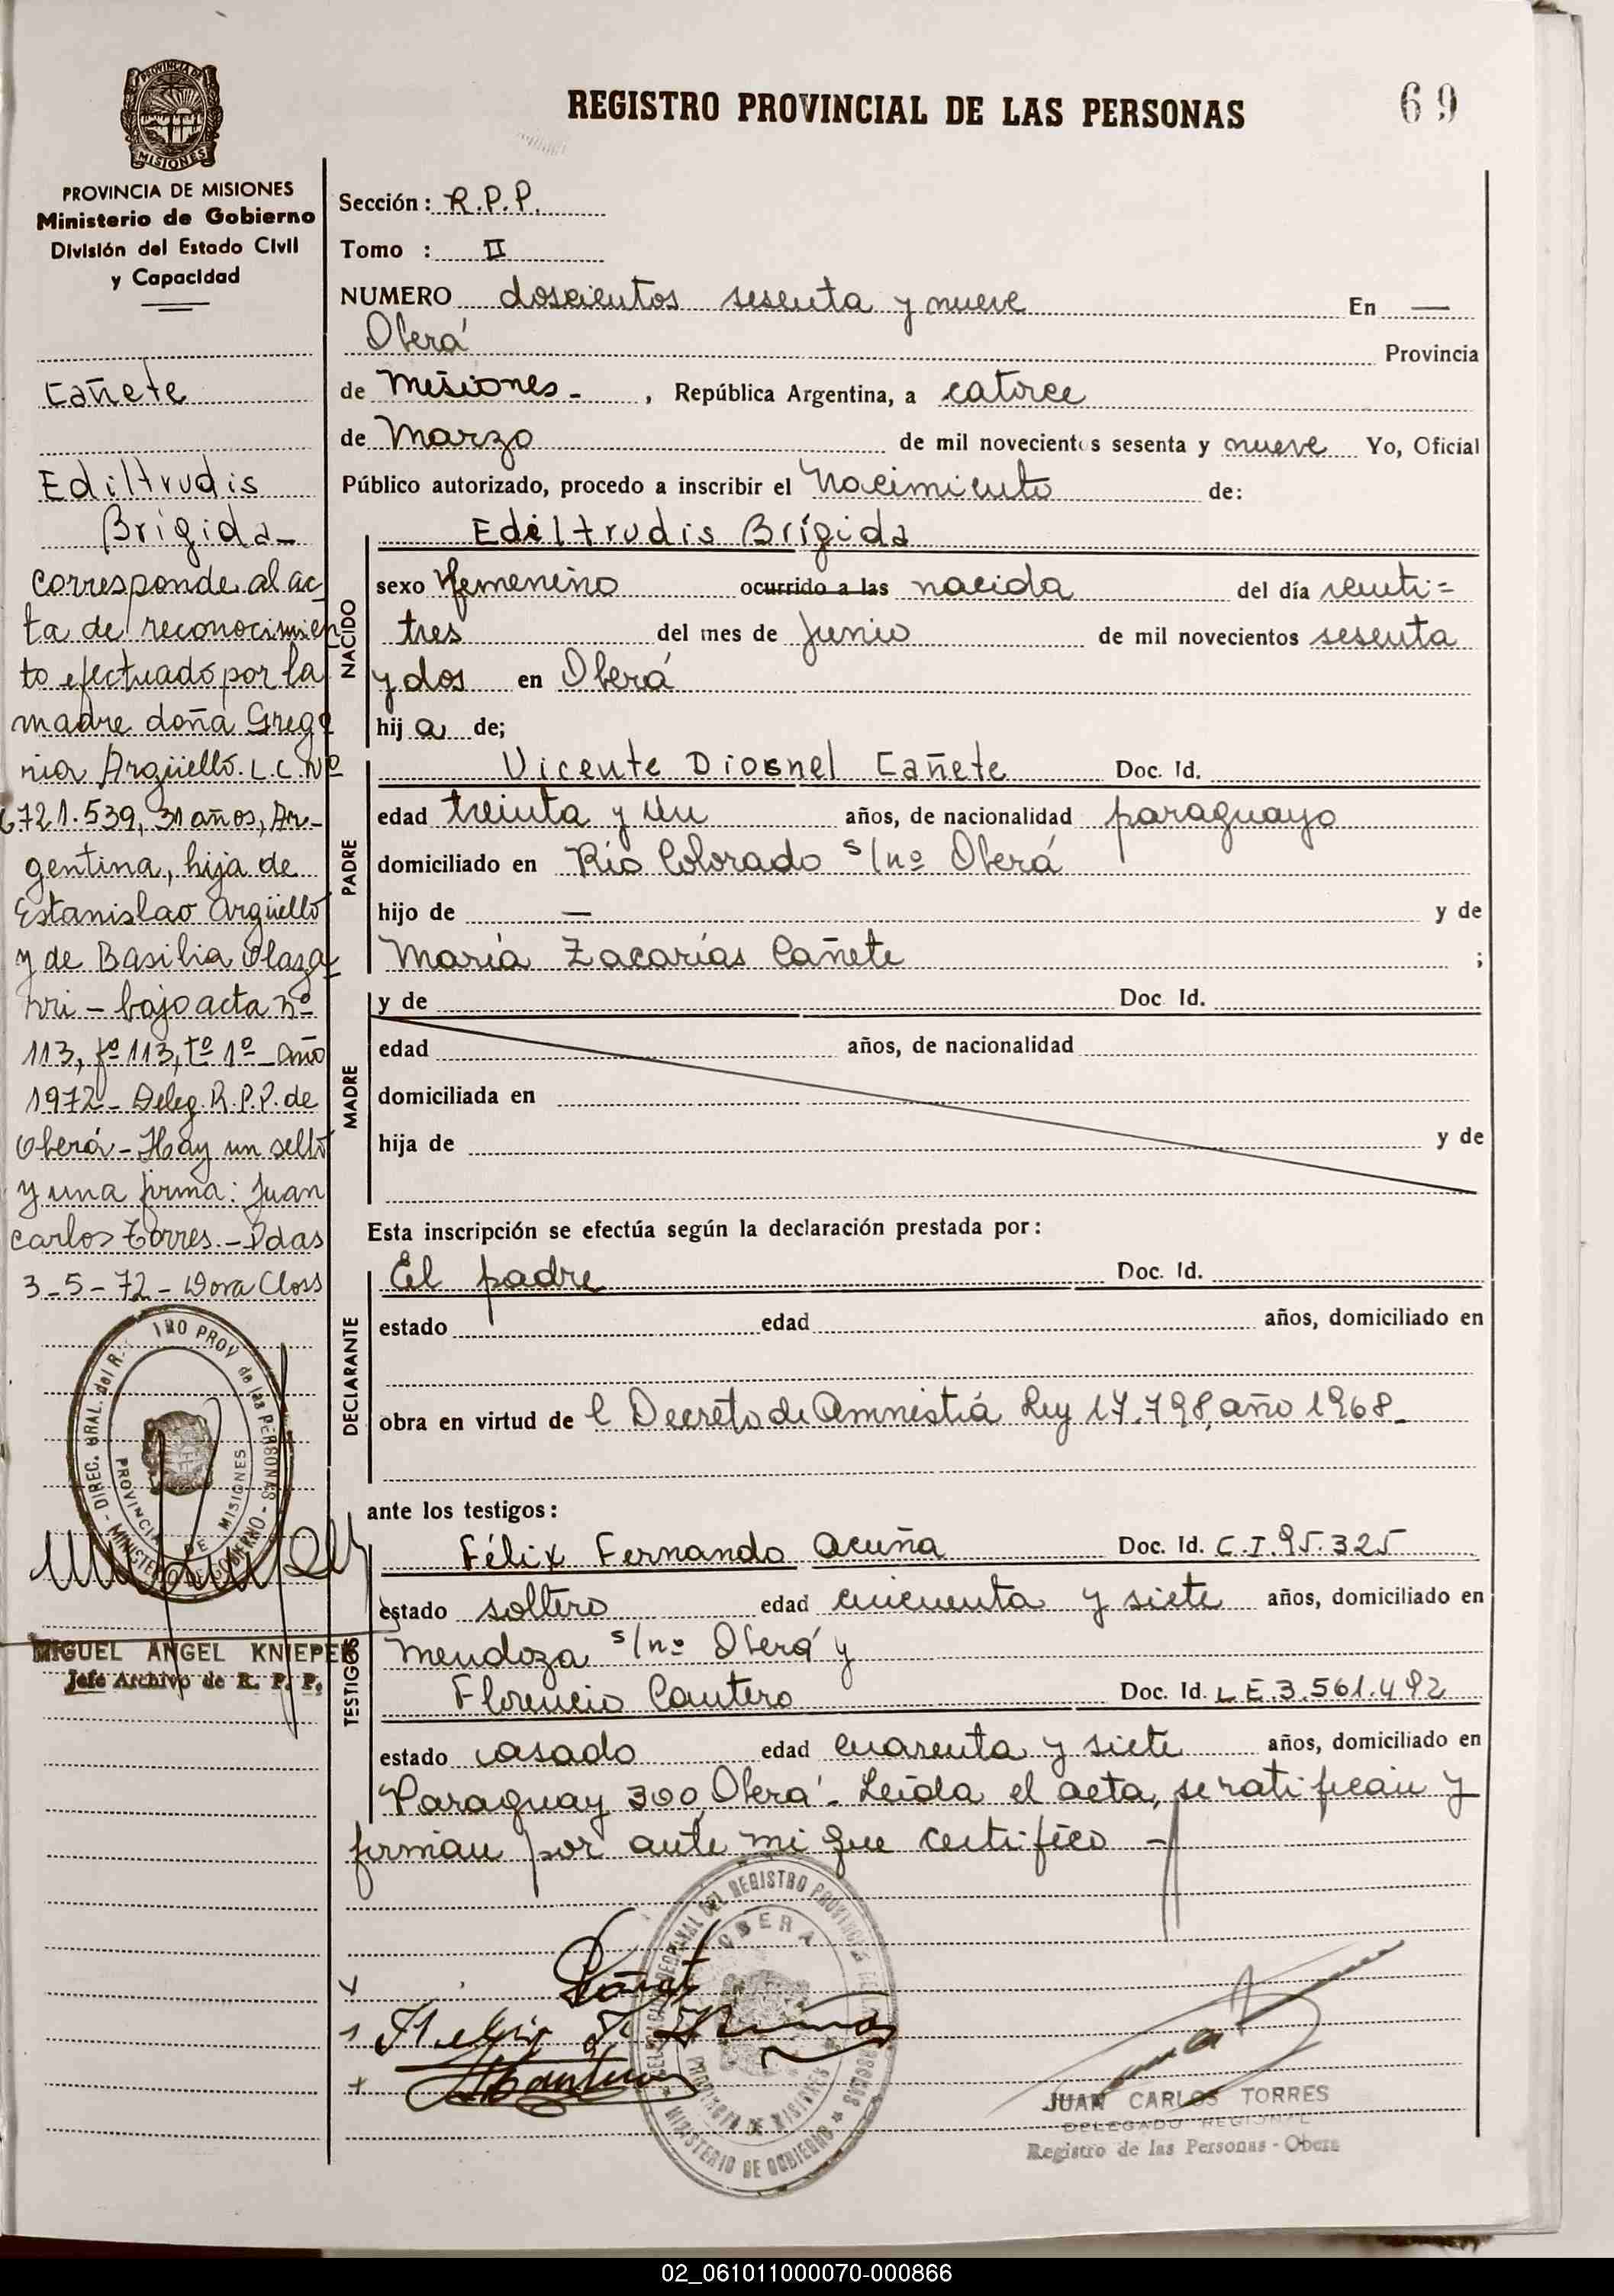 REGISTRO PROVINCIAL DE LAS PERSONAS
69
PROVINCIA DE
MISIONES
PROVINCIA DE MISIONES
Ministerio de Gobierno
División del Estado Civil
y Capacidad
Cañete
Ediltrudis
Brígida-
corresponde al ac
ta de reconocimien
to efectuado por la
madre doña Grego
ria Argüello. L.C. Nº
6721.539, 31 años, Ar-
gentina, hija de
Estanislao Argüello
y de Basilia Olaza
rri - bajo acta nº
113, fº 113, tº 1º - año
1972 - Deleg. R.P.P. de
Oberá - Hay un sello
y una firma: Juan
Carlos Torres. - Pdas
3-5-72 - Dora Closs
MIGUEL ANGEL KNIEPER
Jefe Archivo de R. P. P.
Sección: R.P.P.
Tomo : II
NUMERO doscientos sesenta y nueve En —
Oberá Provincia
de Misiones - , República Argentina, a catorce
de Marzo de mil novecientos sesenta y nueve Yo, Oficial
Público autorizado, procedo a inscribir el Nacimiento de:
NACIDO
Ediltrudis Brígida
sexo femenino ocurrido a las nacida del día veinti=
tres del mes de Junio de mil novecientos sesenta
y dos en Oberá
hij a de;
PADRE
Vicente Diosnel Cañete Doc. Id.
edad treinta y un años, de nacionalidad paraguayo
domiciliado en Río Colorado s/nº Oberá
hijo de — y de
María Zacarías Cañete ;
MADRE
y de Doc. Id.
edad años, de nacionalidad
domiciliada en
hija de y de
Esta inscripción se efectúa según la declaración prestada por:
DECLARANTE
El padre Doc. Id.
estado edad años, domiciliado en
obra en virtud de l Decreto de Amnistía Ley 17.798, año 1968-
ante los testigos:
TESTIGOS
Félix Fernando Acuña Doc. Id. C.I. 95.325
estado soltero edad cincuenta y siete años, domiciliado en
Mendoza s/nº Oberá y
Florencio Cantero Doc. Id. L E 3.561.492
estado casado edad cuarenta y siete años, domiciliado en
Paraguay 300, Oberá - Leída el acta, se ratifican y
firman por ante mi que certifico -
OBERA
PROVINCIA DE MISIONES
MINISTERIO DE GOBIERNO
JUAN CARLOS TORRES
DELEGADO REGIONAL
Registro de las Personas - Obera
02_061011000070-000866